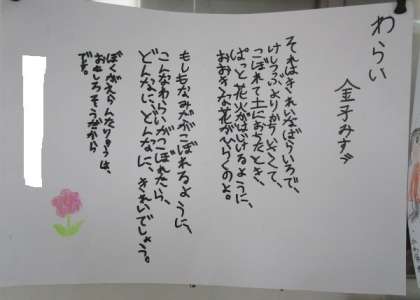 わらい
金子みすゞ
それはきれいなばらいろで、
けしつぶよりかちいさくて、
こぼれて土におちたとき、
ぱっと花火がはじけるように、
おおきな花がひらくのよ。
もしもなみだがこぼれるように、
こんなわらいがこぼれたら、
どんなに、どんなに、きれいでしょう。
ぼくがえらんだりゆうは、
おもしろそうだから
です。